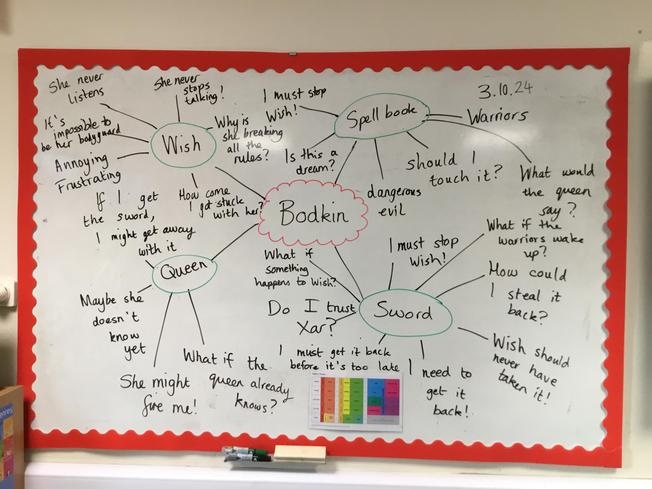 She never
listens
She never
stops
talking!
It's
impossible to
be her bodyguard
Annoying
Frustrating
Wish
Why is
she breaking
all the
rules?
How come
I got stuck
with her?
I must stop
Wish!
Is this a
dream?
Spell book
3.10.24
Warriors
dangerous
evil
should I
touch it?
What would
the queen
say?
Bodkin
If I get
the sword,
I might get away
with it
Queen
Maybe she
doesn't
know
yet
She might
fire me!
What if the
queen already
knows?
What if
something
happens to Wish?
Do I trust
Xar?
I must get it back
before it's too late
I must stop
Wish!
Sword
What if the
warriors wake
up?
How could
I steal it
back?
Wish should
never have
taken it!
I need to
get it
back!